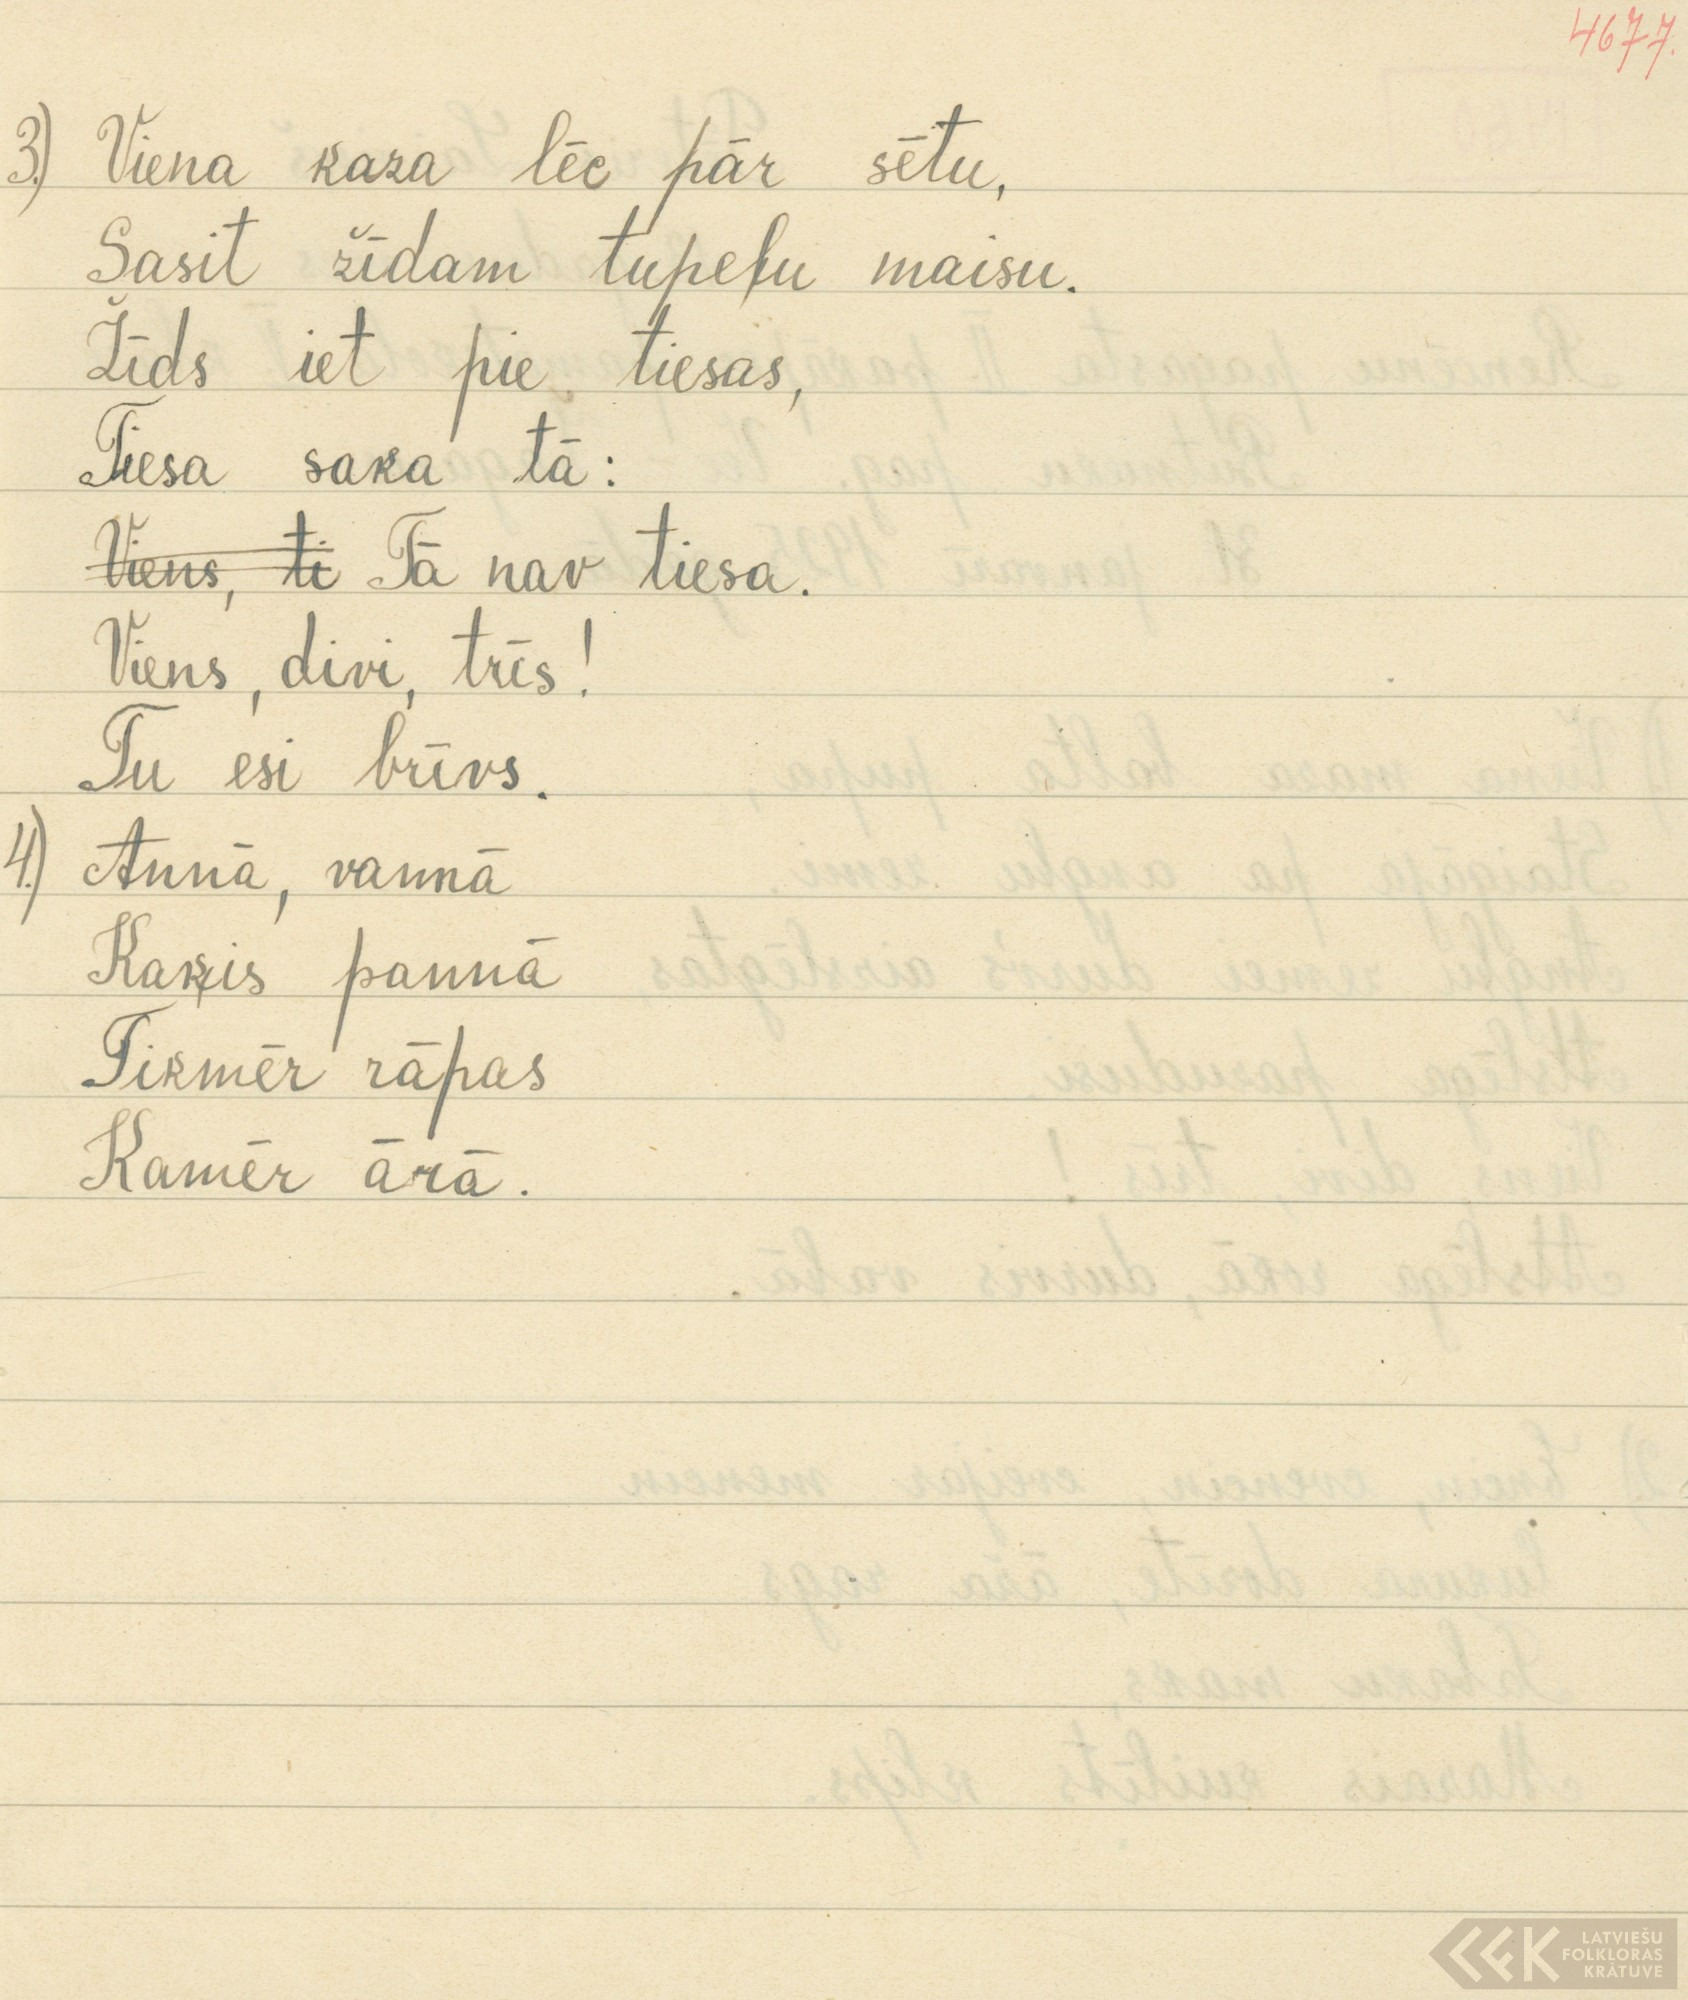 4677.
3.) Viena kaza lēc pār sētu,
Sasit žīdam tupeļu maisu.
Žīds iet pie tiesas,
Tiesa saka tā:
~~Viens, ti~~ Tā nav tiesa.
Viens, divi, trīs!
Tu esi brīvs.
4.) Annā, vannā
Kaķis pannā
Tikmēr rāpas
Kamēr ārā.
LATVIEŠU
FOLKLORAS
KRĀTUVE